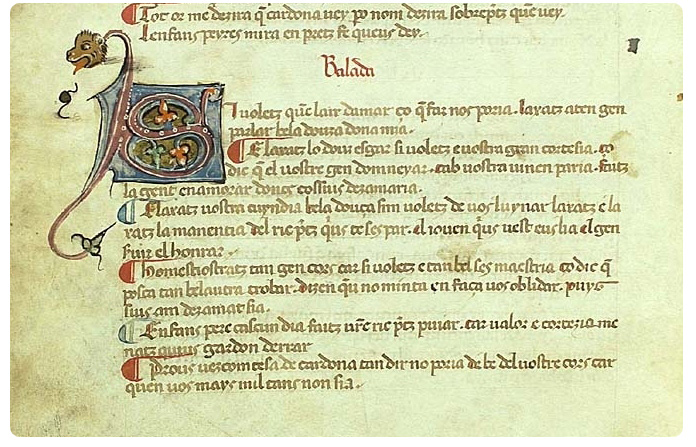 Tot or me dezira q̃ cardona vey po nom dezira sobrep̃tz quen vey.
Lenfans peyres mira en pretz fe queus dey.
Balada
Si voletz quẽ lair damar ço q̃ far nos poria. laxatz aten gen
parlar bela douza dona mia.
E laxatz lo douz esgar si voletz e vostra gran cortesia. co
dic q̃ el vostre gen domneyar. cab vostra ginen paria. faitz
la gent enamorar donçs cossius dezamaria.
E laxatz vostra cuyndia bela douça sim voletz de vos luynar laxatz e la
xatz la manentia del ric p̃tz q̃us te ses par. el iouen q̃us vest eus lia el gen
fuir el honrar.
Homes mostratz tan gen cors car si voletz e tan bel ses maestria co dic q̃
posca tan bel autra trobar. dizen qu no minta en faça vos oblidar. puys
sius am dezamar sia.
Enfans pere cascun dia faitz vr̃e ric p̃tz puiar. car valor e cortezia me
natz queus gardon derrar
Pros vezcomtesa de cardona tan dir no poria de be del vostre cors car
quen vos mays mil tans non sia.